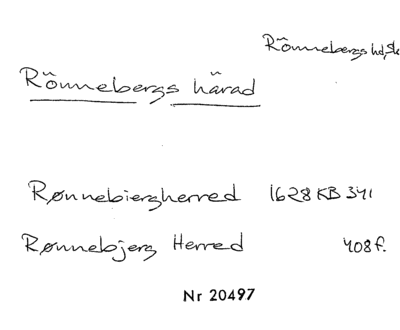 Rönnebergs hd, Sk
Rönnebergs härad
Rønnebiergherred 1628 KB 341
Rønnebjerg Herred 408 f.
Nr 20497